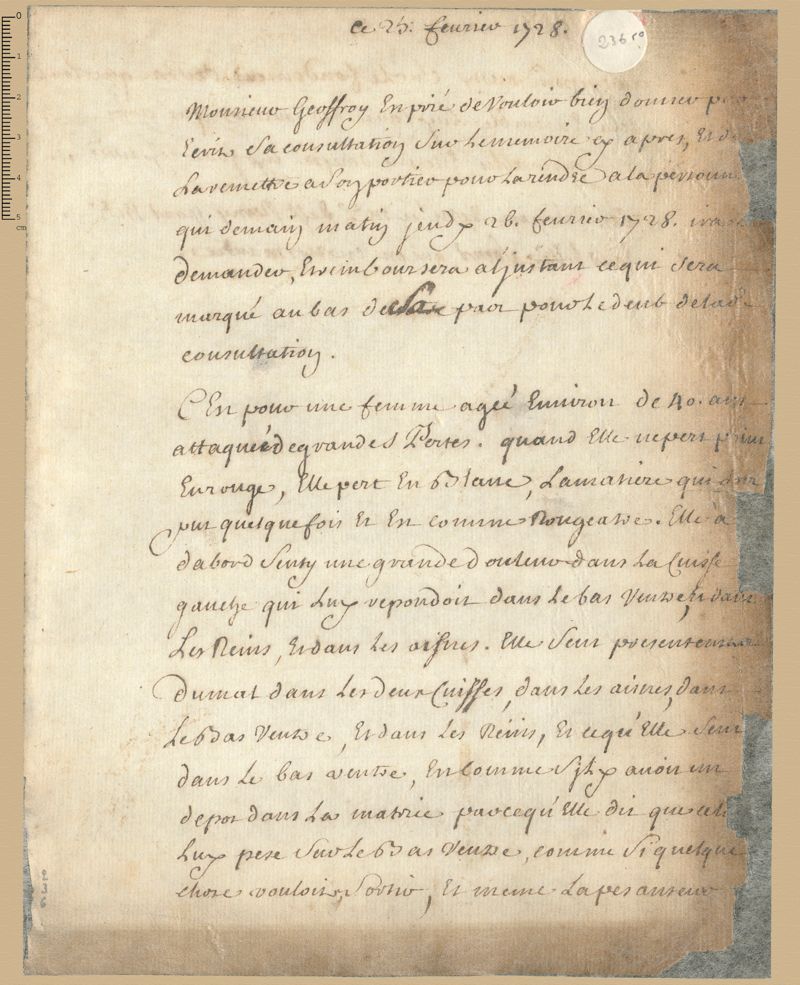 ce 25. feurier 1728.
236 ro
Monsieur Geoffroy Est prié de Vouloir bien donner par
Ecrit Sa consultation Sur Le memoire cy apres, Et de
La remettre a Son portier pour La rendre a la personne
qui demain matin jeudy 26. feurier 1728. ira la
demander, Et remboursera a l'jnstant ce qui Sera
marqué au bas de par pour Le deub de lad.e
consultation.
C'Est pour une femme ageé Enuiron de 40. ans
attaqueé de grandes Pertes. quand Elle ne pert point
En rouge, Elle pert En Blanc, La matiere qui Sort
put quelque fois Et Est comme Rougeatre. Elle a
dabord Senty une grande douleur dans La Cuisse
gauche qui Luy repondoit dans Le bas Ventre, Et dans
Les Reins, Et dans Les aisnes. Elle Sent presentement
Du mal dans Les deux Cuisses, dans Les aisnes, dans
Le Bas Ventre, Et dans Les Reins, Et ce qu'Elle Sent
dans Le bas ventre, Est Comme S'jl y auoit un
depot dans La matrice parce qu'Elle dit que cela
Luy pese Sur Le Bas Ventre, comme Si quelque
chose vouloit Sortir, Et meme La pesanteur
236